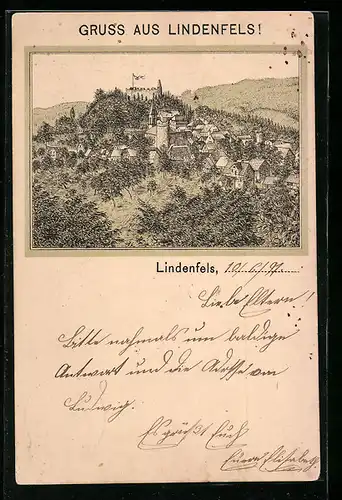 GRUSS AUS LINDENFELS!
Lindenfels, 10/6/97.
Liebe Eltern!
Bitte nochmals um baldige
Antwort und die Adresse von
Ludwig.
Es grüßt Euch
Euere Elisabeth